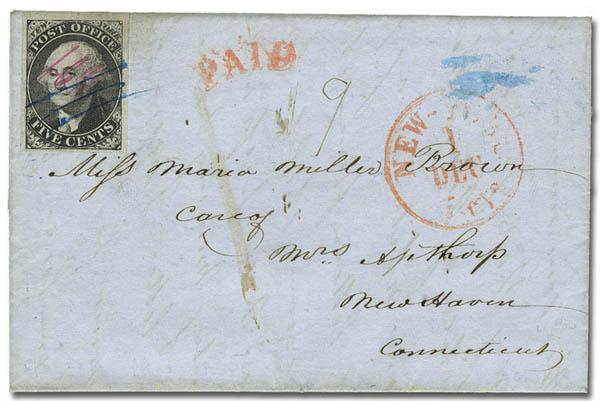 POST OFFICE
FIVE CENTS
PAID
19
NEW-YORK
1
DEC
5 cts
Miss Maria Miller Brown
Care of
Mrs Apthorp
New Haven
Connecticut